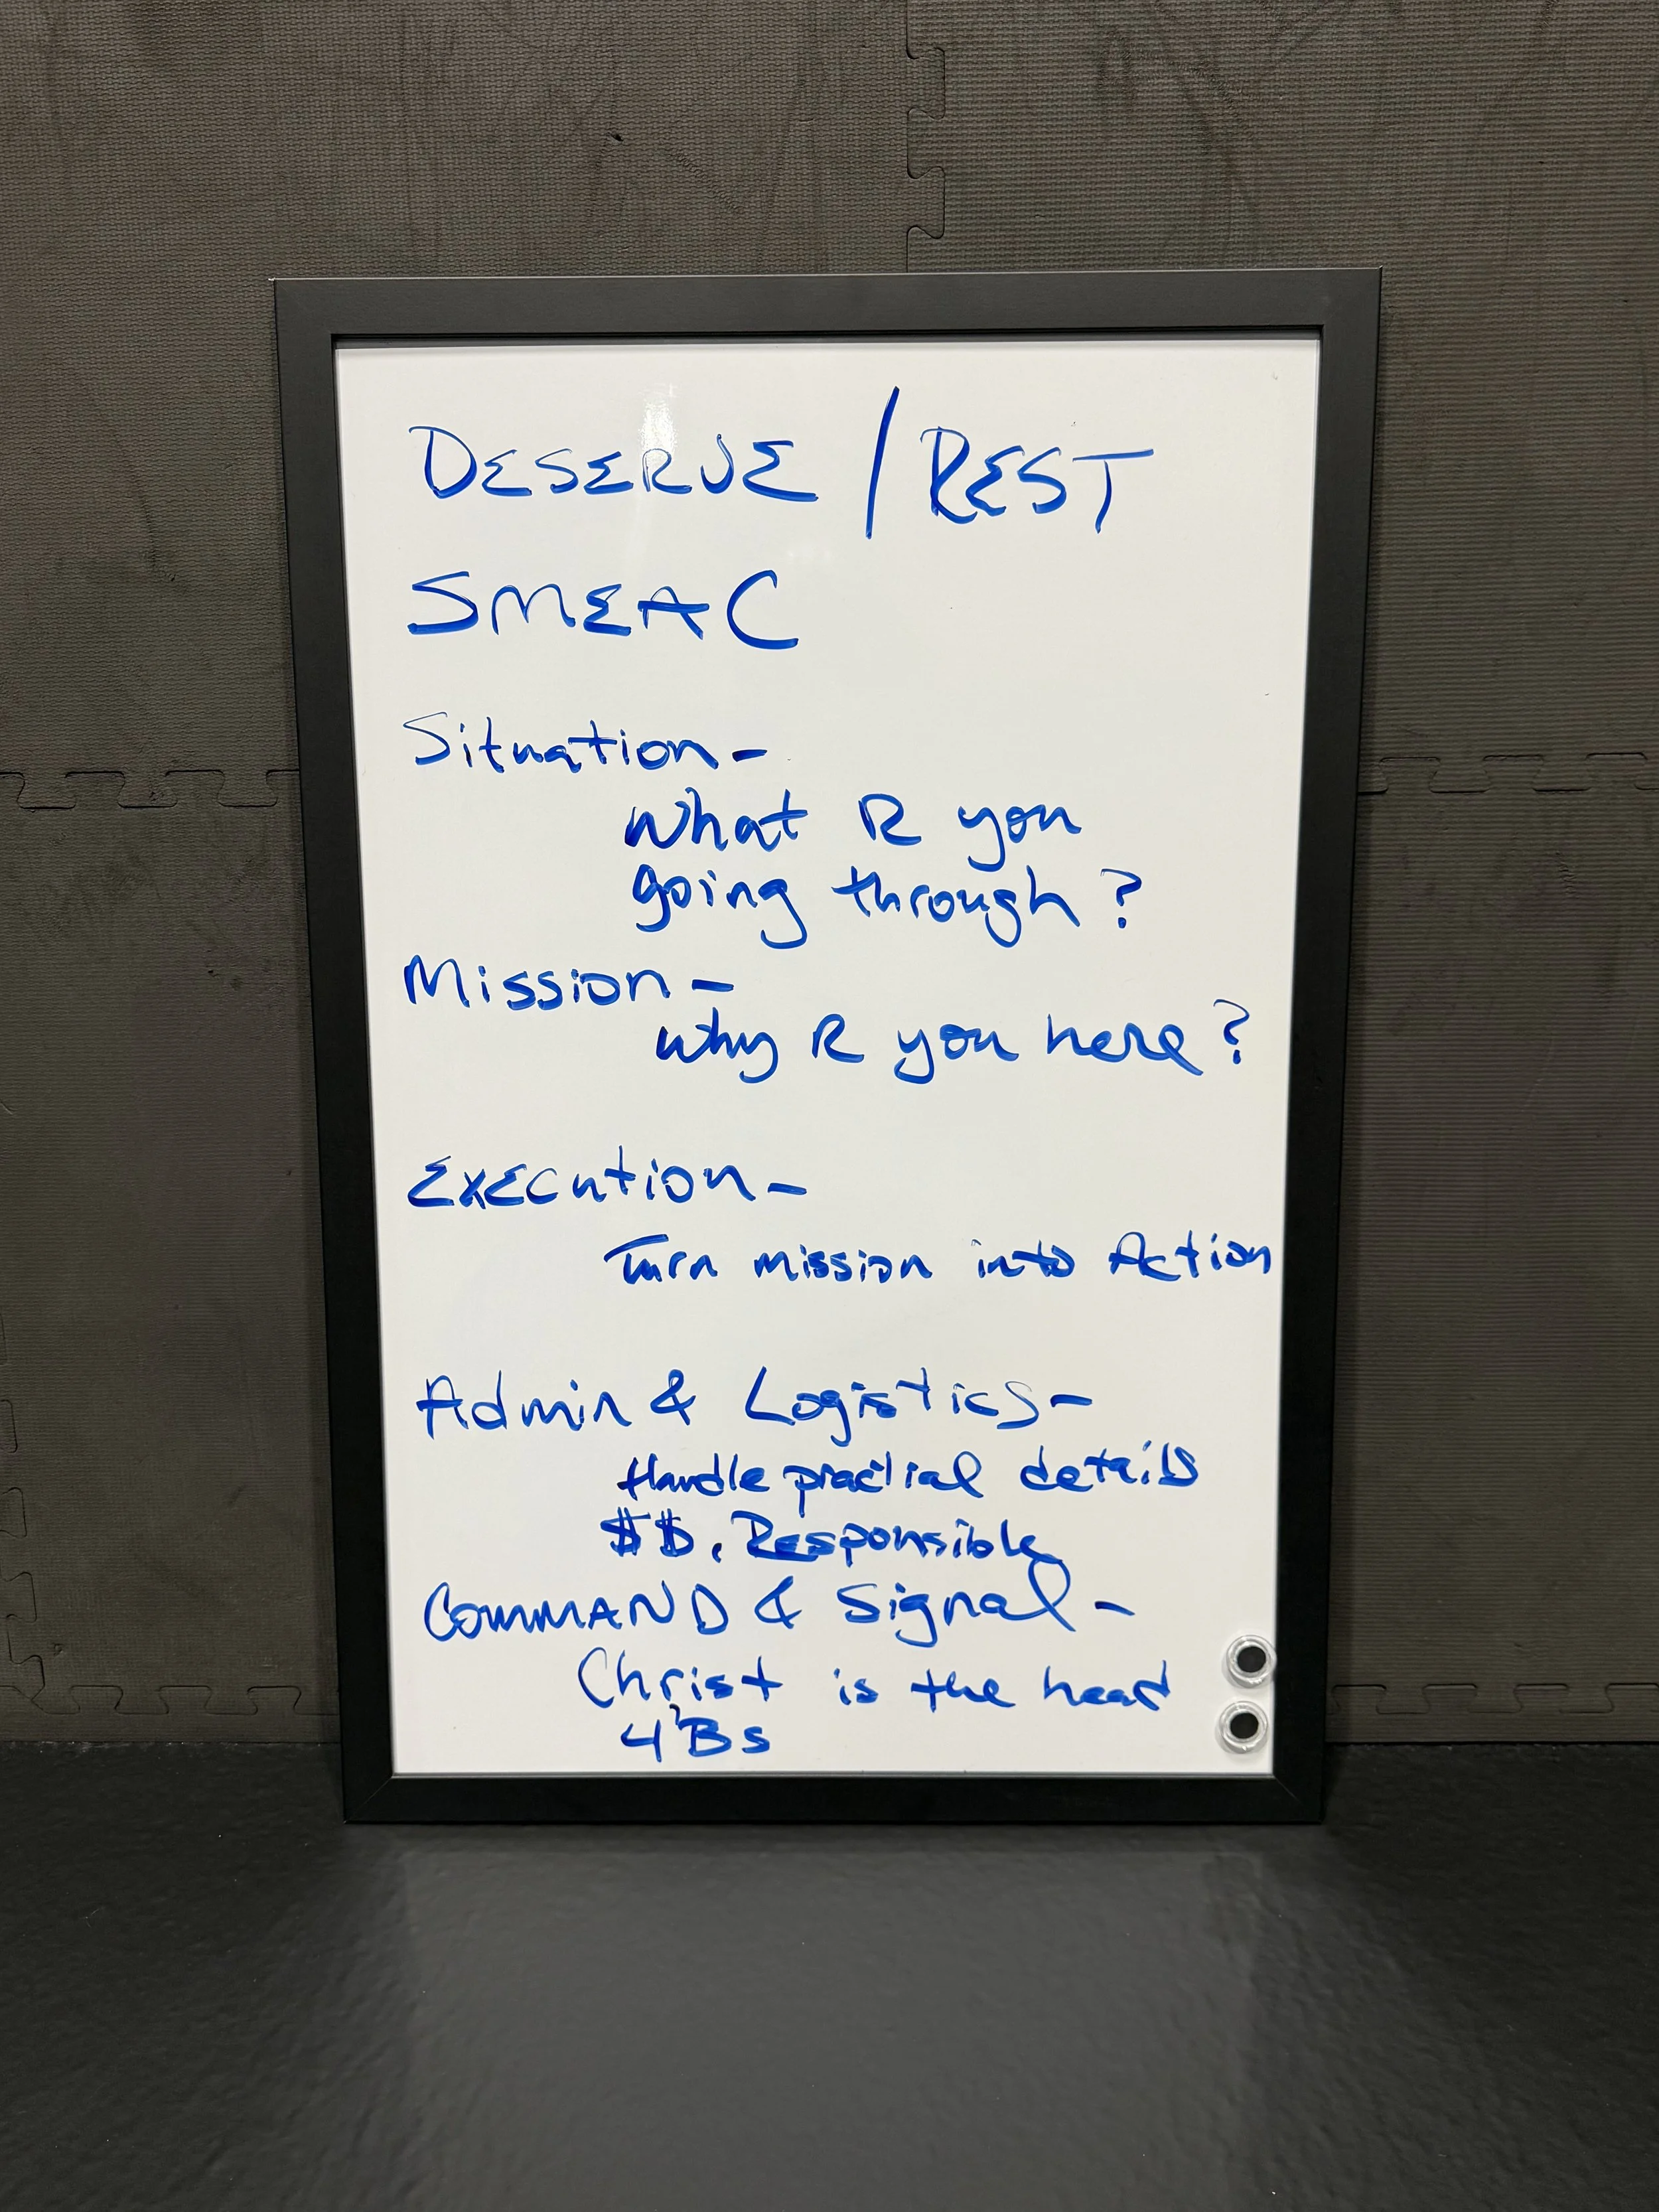 DESERVE / REST
SMEAC
Situation -
What R you
going through?
Mission -
why R you here?
Execution -
Turn mission into Action
Admin & Logistics -
Handle practical details
$$, Responsible
COMMAND & Signal -
Christ is the head
4 Bs